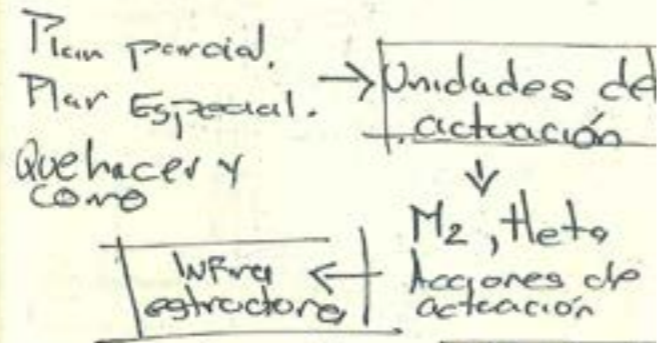 Plan parcial.
Plan Especial.
Que hacer y
como
Unidades de
actuación
M2, Heta
Acciones de
actuación
Infra
estructura